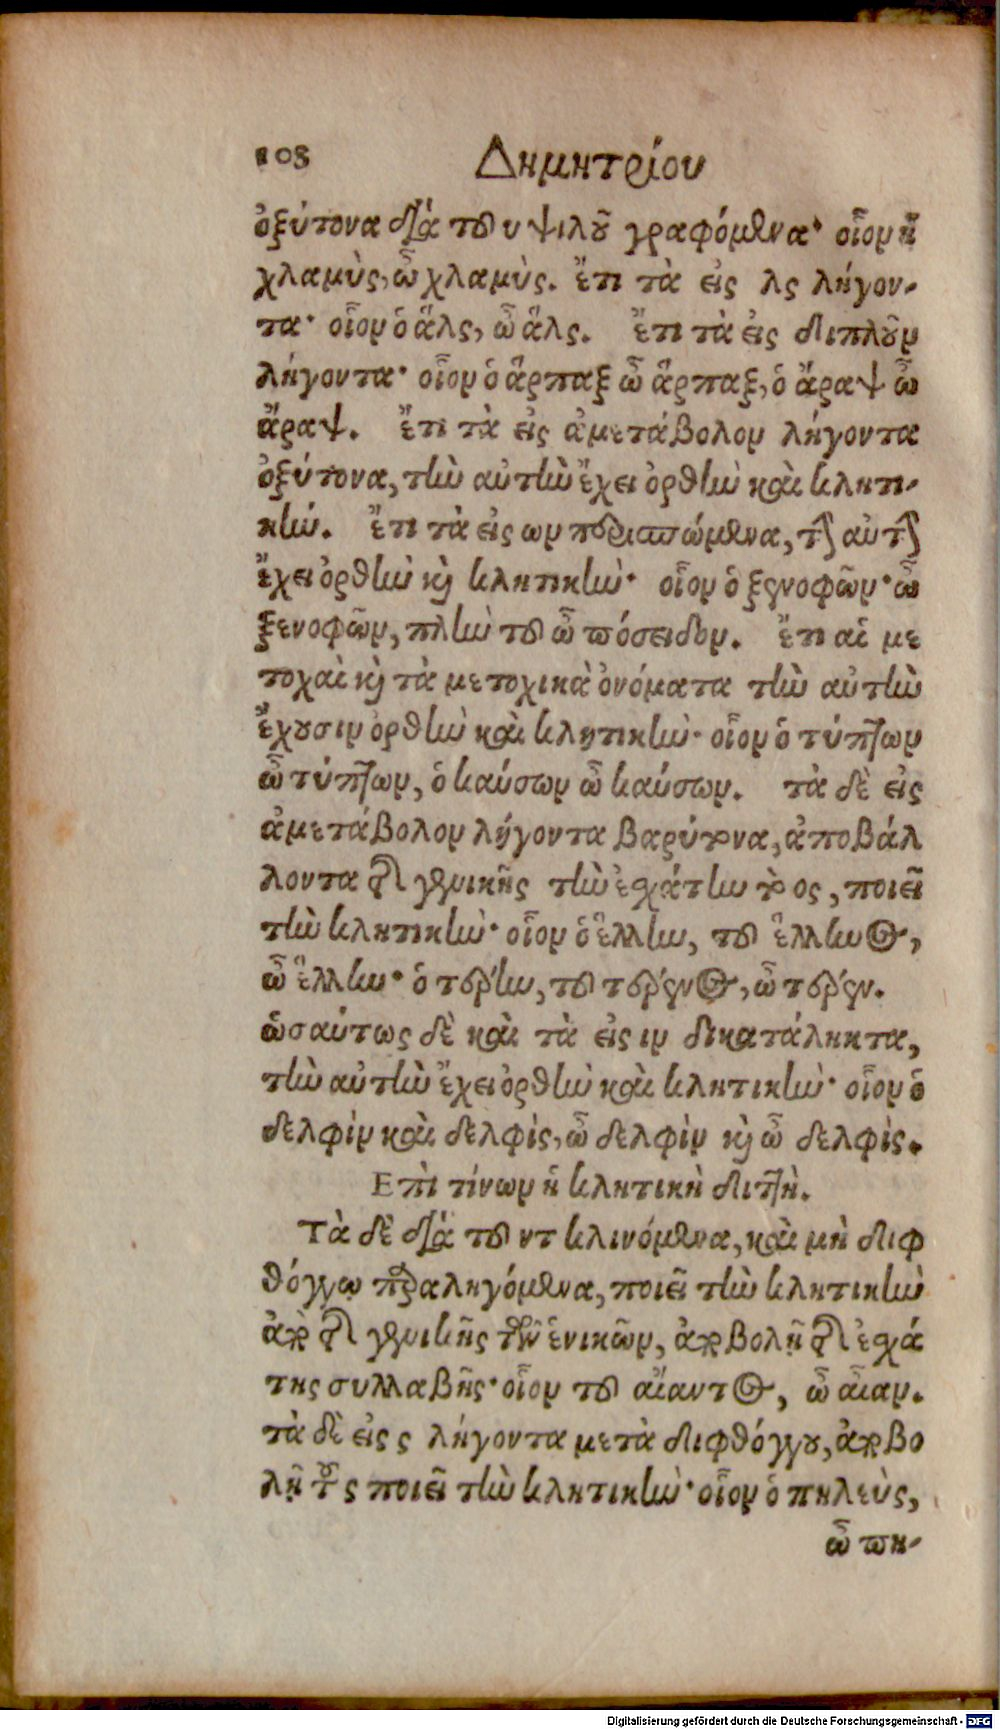 108 Δημητρίου
ὀξύτονα διὰ τοῦ υ ψιλοῦ γραφόμενα· οἷον ἡ
χλαμὺς, ὦ χλαμὺς. ἔτι τὰ εἰς λς λήγον-
τα· οἷον ὁ ἅλς, ὦ ἅλς. ἔτι τὰ εἰς διπλοῦν
λήγοντα· οἷον ὁ ἅρπαξ ὦ ἅρπαξ, ὁ ἄραψ ὦ
ἄραψ. ἔτι τὰ εἰς ἀμετάβολον λήγοντα
ὀξύτονα, τὴν αὐτὴν ἔχει ὀρθὴν καὶ κλητι-
κήν. ἔτι τὰ εἰς ων περισπώμενα, τὴν αὐτὴν
ἔχει ὀρθὴν καὶ κλητικὴν· οἷον ὁ ξενοφῶν· ὦ
ξενοφῶν, πλὴν τοῦ ὦ πόσειδον. ἔτι αἱ με
τοχαὶ καὶ τὰ μετοχικὰ ὀνόματα τὴν αὐτὴν
ἔχουσιν ὀρθὴν καὶ κλητικὴν· οἷον ὁ τύπτων
ὦ τύπτων, ὁ καύσων ὦ καύσων. τὰ δὲ εἰς
ἀμετάβολον λήγοντα βαρύτονα, ἀποβάλ
λοντα τῆς γενικῆς τὴν ἐσχάτην τὸ ος, ποιεῖ
τὴν κλητικὴν· οἷον ὁ ἕλλην, τοῦ ἕλληνος,
ὦ ἕλλην· ὁ τέρην, τοῦ τέρενος, ὦ τέρεν.
ὡσαύτως δὲ καὶ τὰ εἰς ιν δικατάληκτα,
τὴν αὐτὴν ἔχει ὀρθὴν καὶ κλητικὴν· οἷον ὁ
δελφὶν καὶ δελφὶς, ὦ δελφὶν καὶ ὦ δελφὶς.
Επὶ τίνων ἡ κλητικὴ διττὴ.
Τὰ δὲ διὰ τοῦ ντ κλινόμενα, καὶ μὴ διφ
θόγγῳ παραληγόμενα, ποιεῖ τὴν κλητικὴν
ἀπὸ τῆς γενικῆς τῶν ἑνικῶν, ἀποβολῇ τῆς ἐσχά
της συλλαβῆς· οἷον τοῦ αἴαντος, ὦ αἶαν.
τὰ δὲ εἰς ς λήγοντα μετὰ διφθόγγου, ἀποβο
λῇ τοῦ ς ποιεῖ τὴν κλητικὴν· οἷον ὁ πηλεὺς,
ὦ πη-
Digitalisierung gefördert durch die Deutsche Forschungsgemeinschaft - DFG